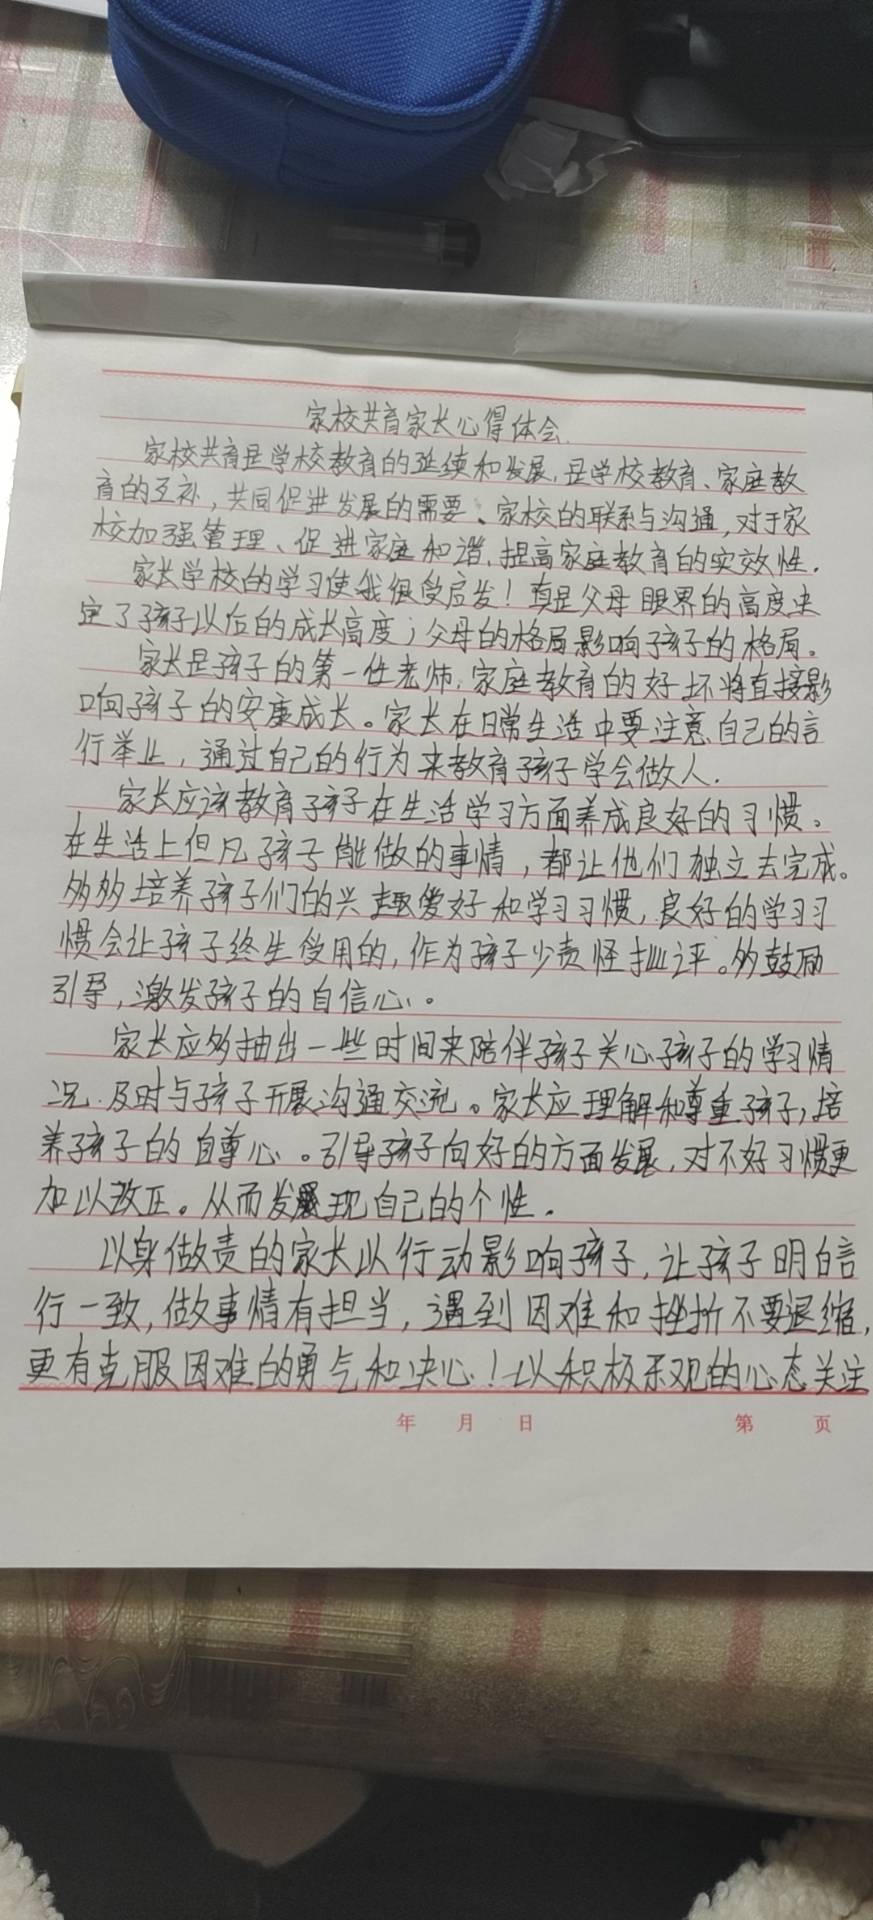 家校共育家长心得体会.
家校共育是学校教育的延续和发展,是学校教育、家庭教
育的互补,共同促进发展的需要、家校的联系与沟通,对于家
校加强管理、促进家庭和谐.提高家庭教育的实效性.
家长学校的学习使我很受启发!真是父母眼界的高度决
定了孩子以后的成长高度;父母的格局影响孩子的格局。
家长是孩子的第一任老师,家庭教育的好坏将直接影
响孩子的安康成长。家长在日常生活中要注意自己的言
行举止,通过自己的行为来教育孩子学会做人.
家长应该教育孩子在生活学习方面养成良好的习惯。
在生活上但凡孩子能做的事情,都让他们独立去完成。
多多培养孩子们的兴趣爱好和学习习惯,良好的学习习
惯会让孩子终生受用的,作为孩子少责怪批评。多鼓励
引导,激发孩子的自信心。
家长应多抽出一些时间来陪伴孩子关心孩子的学习情
况.及时与孩子开展沟通交流。家长应理解和尊重孩子,培
养孩子的自尊心。引导孩子向好的方面发展,对不好习惯更
加以改正。从而发现自己的个性.
以身做责的家长以行动影响孩子,让孩子明白言
行一致,做事情有担当,遇到困难和挫折不要退缩,
更有克服困难的勇气和决心!以积极乐观的心态关注
年 月 日 第 页